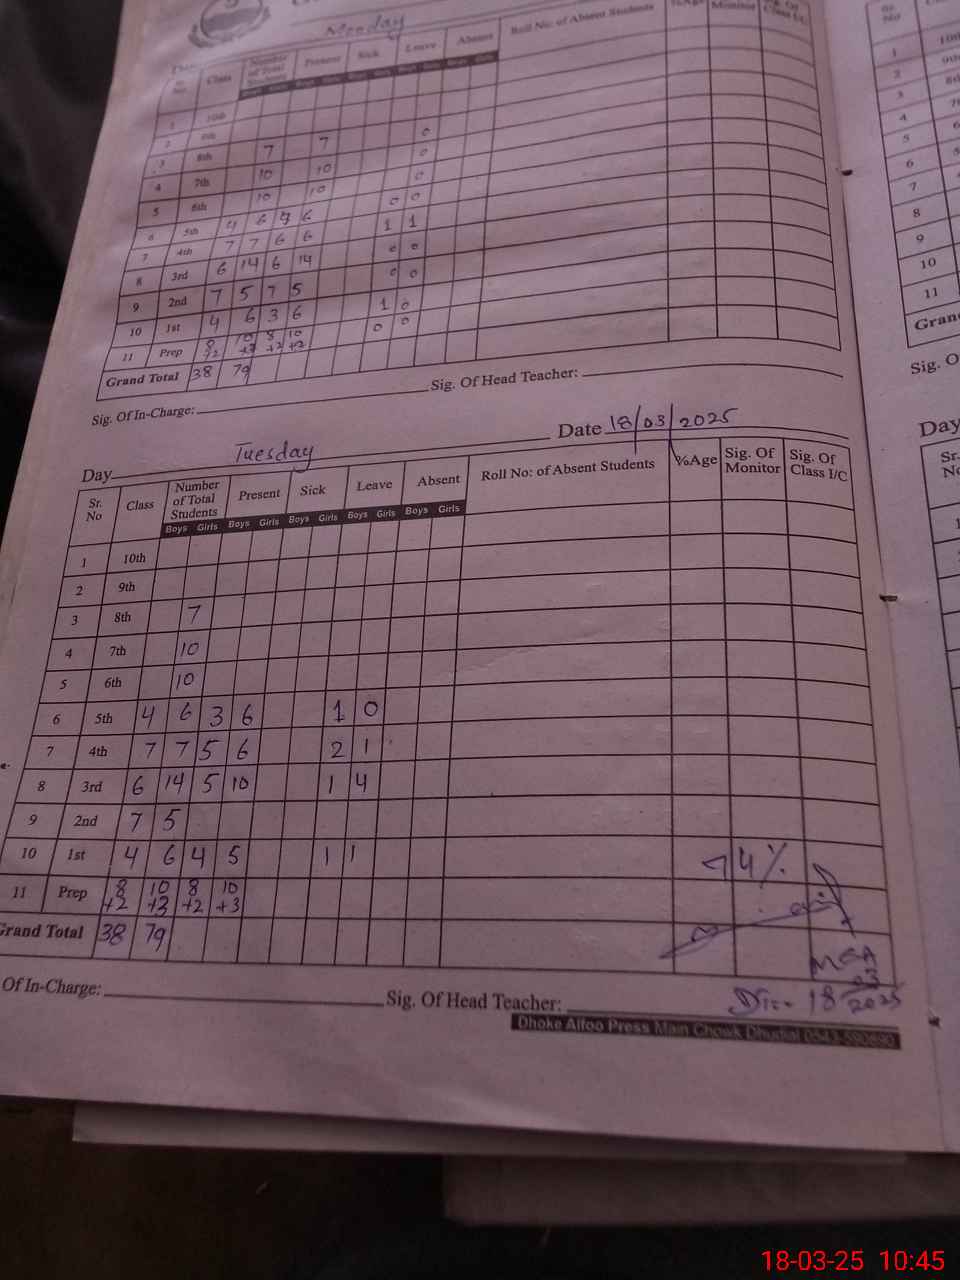 Monday
Sr. No Class Number of Total Students Present Sick Leave Absent Roll No: of Absent Students %Age Monitor Class I/C
Boys Girls Boys Girls Boys Girls Boys Girls Boys Girls
1 10th
2 9th
3 8th 7 7 0
4 7th 10 10 0
5 6th 10 10 0
6 5th 4 6 4 6 0 0
7 4th 7 7 6 6 1 1
8 3rd 6 14 6 14 0 0
9 2nd 7 5 7 5 0 0
10 1st 4 6 3 6 1 0
11 Prep 8 +2 10 8 +2 10 0 0
Grand Total 38 79
Sig. Of In-Charge: Sig. Of Head Teacher:
Day Tuesday Date 18/03/2025
Sr. No Class Number of Total Students Present Sick Leave Absent Roll No: of Absent Students %Age Sig. Of Monitor Sig. Of Class I/C
Boys Girls Boys Girls Boys Girls Boys Girls Boys Girls
1 10th
2 9th
3 8th 7
4 7th 10
5 6th 10
6 5th 4 6 3 6 1 0
7 4th 7 7 5 6 2 1
8 3rd 6 14 5 10 1 4
9 2nd 7 5
10 1st 4 6 4 5 1 1
11 Prep 8 +2 10 +3 8 +2 10 +3
Grand Total 38 79
74%
MEA
03
18 2025
Of In-Charge: Sig. Of Head Teacher:
Dhoke Alfoo Press Main Chowk Dhudial 0543-590690
Sr. No
1
2
3
4
5
6
7
8
9
10
11
Sig. O
Day
Sr.
18-03-25 10:45